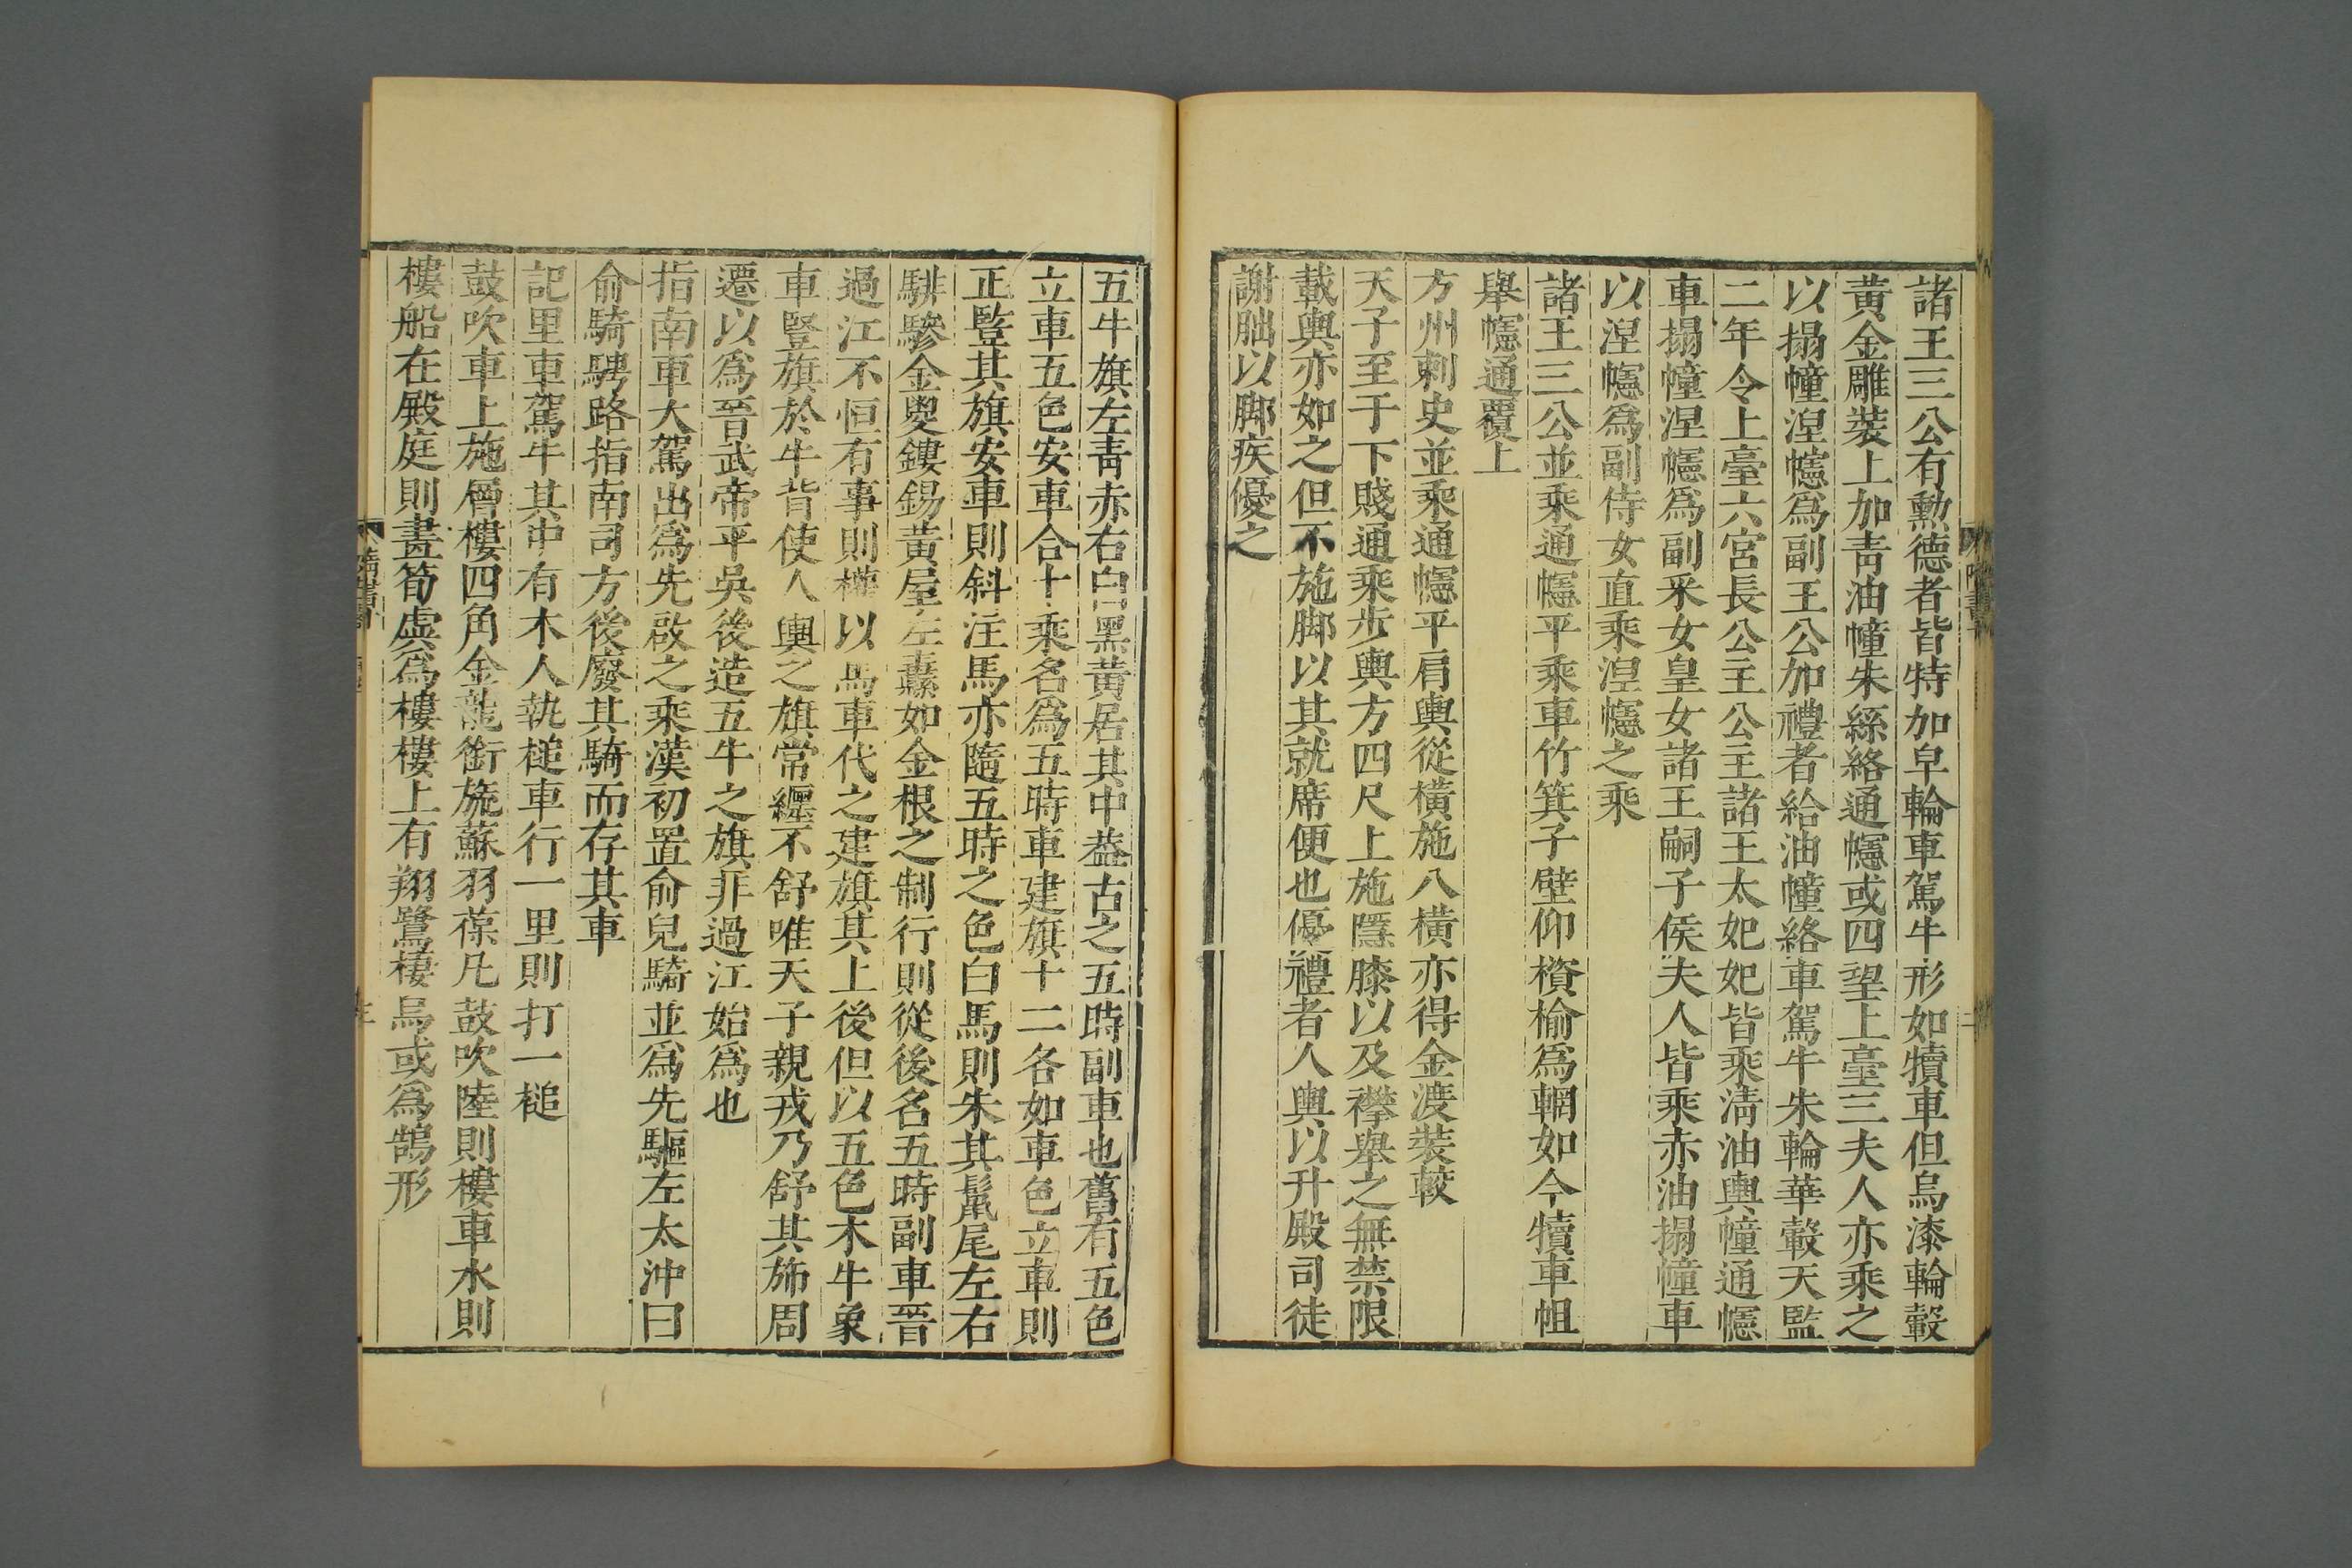 諸王三公有勲德者皆特加皁輪車駕牛形如犢車但烏漆輪轂
黃金雕裝上加青油幢朱絲絡通幰或四望上臺三夫人亦乘之
以搨幢涅幰爲副王公加禮者給油幢絡車駕牛朱輪華轂天監
二年令上臺六宮長公主公主諸王太妃妃皆乘淸油輿幢通幰
車搨幢涅幰爲副釆女皇女諸王嗣子侯夫人皆乘赤油搨幢車
以涅幰爲副侍女直乘涅幰之乘
諸王三公並乘通幰平乘車竹箕子壁仰櫕榆爲輞如今犢車𢂿
舉幰通覆上
方州刺史並乘通幰平肩輿從橫施八橫亦得金渡裝較
天子至于下賤通乘步輿方四尺上施隱膝以及襻舉之無禁限
載輿亦如之但不施脚以其就席便也優禮者人輿以升殿司徒
謝朏以脚疾優之
五牛旗左青赤右白黑黃居其中葢古之五時副車也舊有五色
立車五色安車合十乘名爲五時車建旗十二各如車色立車則
正豎其旗安車則斜注馬亦隨五時之色白馬則朱其鬣尾左右
騑驂金㚇鏤錫黃屋左纛如金根之制行則從後名五時副車晉
過江不恒有事則權以馬車代之建旗其上後但以五色木牛象
車豎旗於牛背使人輿之旗常纒不舒唯天子親戎乃舒其旆周
遷以爲晉武帝平吳後造五牛之旗非過江始爲也
指南車大駕出爲先啟之乘漢初置俞兒騎並爲先驅左太沖曰
俞騎騁路指南司方後廢其騎而存其車
記里車駕牛其中有木人執槌車行一里則打一槌
鼓吹車上施層樓四角金龍銜旒蘇羽葆凡鼓吹陸則樓車水則
樓船在殿庭則畫筍虡爲樓樓上有翔鷺棲烏或爲鵠形